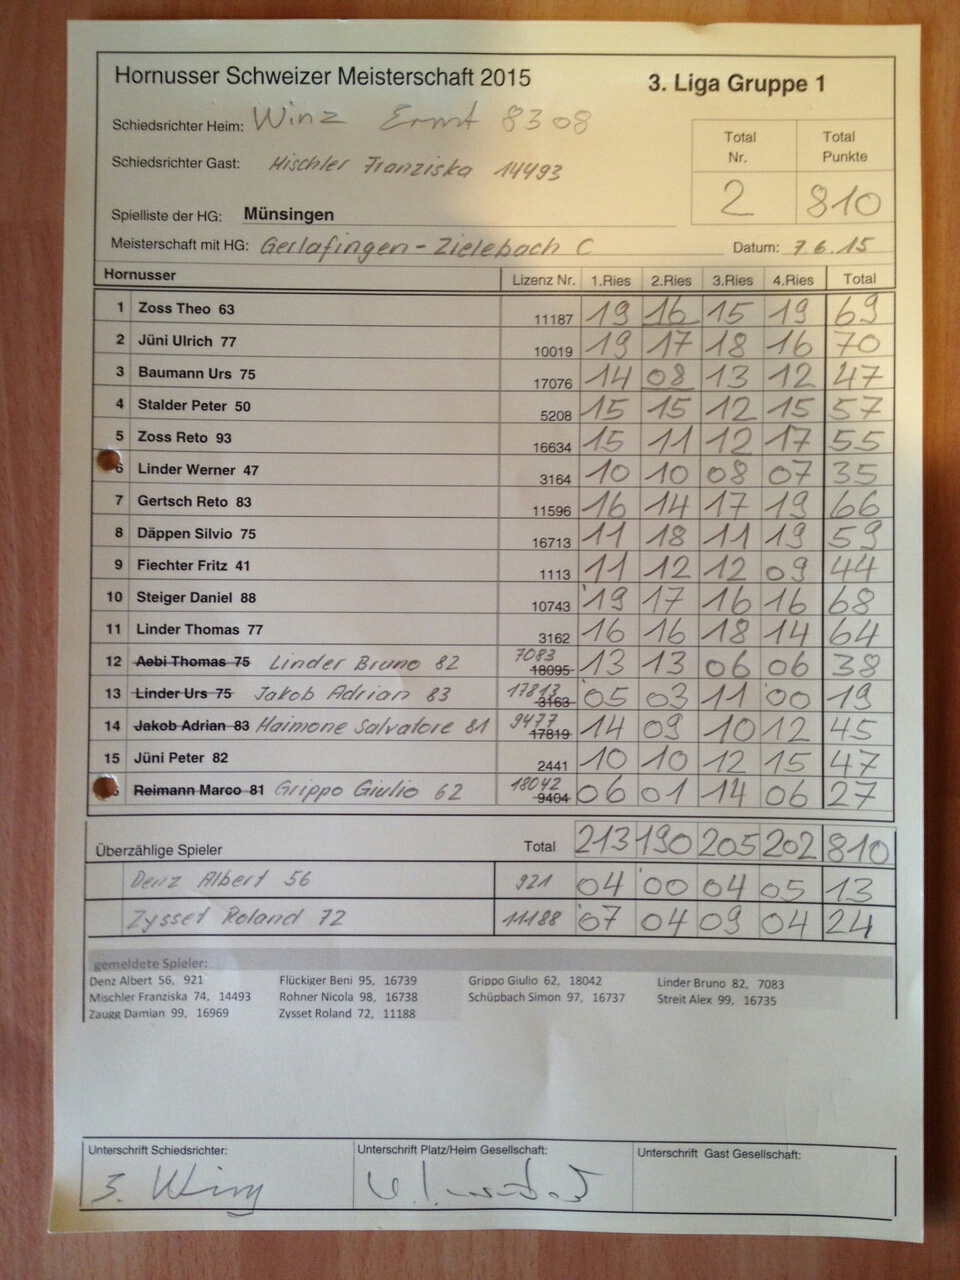 Hornusser Schweizer Meisterschaft 2015 3. Liga Gruppe 1
Schiedsrichter Heim: Winz Ernst 8308
Schiedsrichter Gast: Mischler Franziska 14493
Total Nr. Total Punkte
2 810
Spielliste der HG: Münsingen
Meisterschaft mit HG: Gerlafingen-Zielebach C Datum: 7.6.15
Hornusser Lizenz Nr. 1.Ries 2.Ries 3.Ries 4.Ries Total
1 Zoss Theo 63 11187 19 16 15 19 69
2 Jüni Ulrich 77 10019 19 17 18 16 70
3 Baumann Urs 75 17076 14 08 13 12 47
4 Stalder Peter 50 5208 15 15 12 15 57
5 Zoss Reto 93 16634 15 11 12 17 55
6 Linder Werner 47 3164 10 10 08 07 35
7 Gertsch Reto 83 11596 16 14 17 19 66
8 Däppen Silvio 75 16713 11 18 11 19 59
9 Fiechter Fritz 41 1113 11 12 12 09 44
10 Steiger Daniel 88 10743 19 17 16 16 68
11 Linder Thomas 77 3162 16 16 18 14 64
12 Aebi Thomas 75 Linder Bruno 82 7083 18095 13 13 06 06 38
13 Linder Urs 75 Jakob Adrian 83 17813 3163 05 03 11 00 19
14 Jakob Adrian 83 Maimone Salvatore 81 9477 17819 14 09 10 12 45
15 Jüni Peter 82 2441 10 10 12 15 47
6 Reimann Marco 81 Grippo Giulio 62 18042 9404 06 01 14 06 27
Überzählige Spieler Total 213 190 205 202 810
Denz Albert 56 921 04 00 04 05 13
Zysset Roland 72 11188 07 04 09 04 24
gemeldete Spieler:
Denz Albert 56, 921 Flückiger Beni 95, 16739 Grippo Giulio 62, 18042 Linder Bruno 82, 7083
Mischler Franziska 74, 14493 Rohner Nicola 98, 16738 Schüpbach Simon 97, 16737 Streit Alex 99, 16735
Zaugg Damian 99, 16969 Zysset Roland 72, 11188
Unterschrift Schiedsrichter: Unterschrift Platz/Heim Gesellschaft: Unterschrift Gast Gesellschaft: